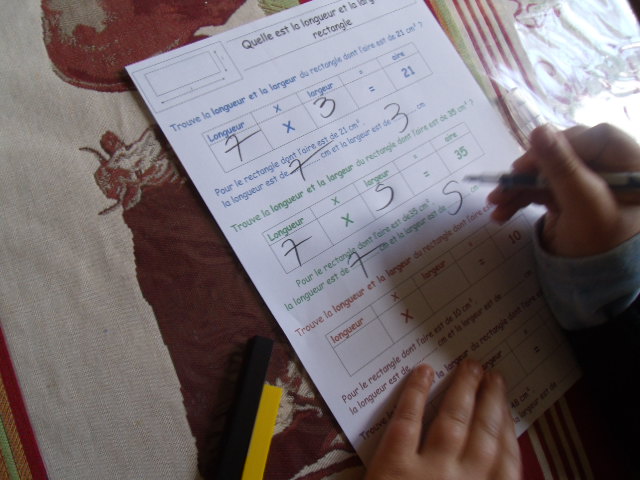 Quelle est la longueur et la
rectangle
Trouve la longueur et la largeur du rectangle dont l'aire est de 21 cm² ?
Longueur x largeur = aire
7 x 3 = 21
Pour le rectangle dont l'aire est de 21 cm²,
la longueur est de 7 cm et la largeur est de 3 cm
Trouve la longueur et la largeur du rectangle dont l'aire est de 35 cm² ?
Longueur x largeur = aire
7 x 5 = 35
Pour le rectangle dont l'aire est de 35 cm²
la longueur est de 7 cm et la largeur est de 5 cm
Trouve la longueur et la largeur du rectangle dont l'aire est
longueur x largeur =
x = 10
Pour le rectangle dont l'aire est de 10 cm²
la longueur est de cm et la largeur est de
Trouve la la largeur du rectangle dont l'aire
largeur =
=
48 cm²
est de